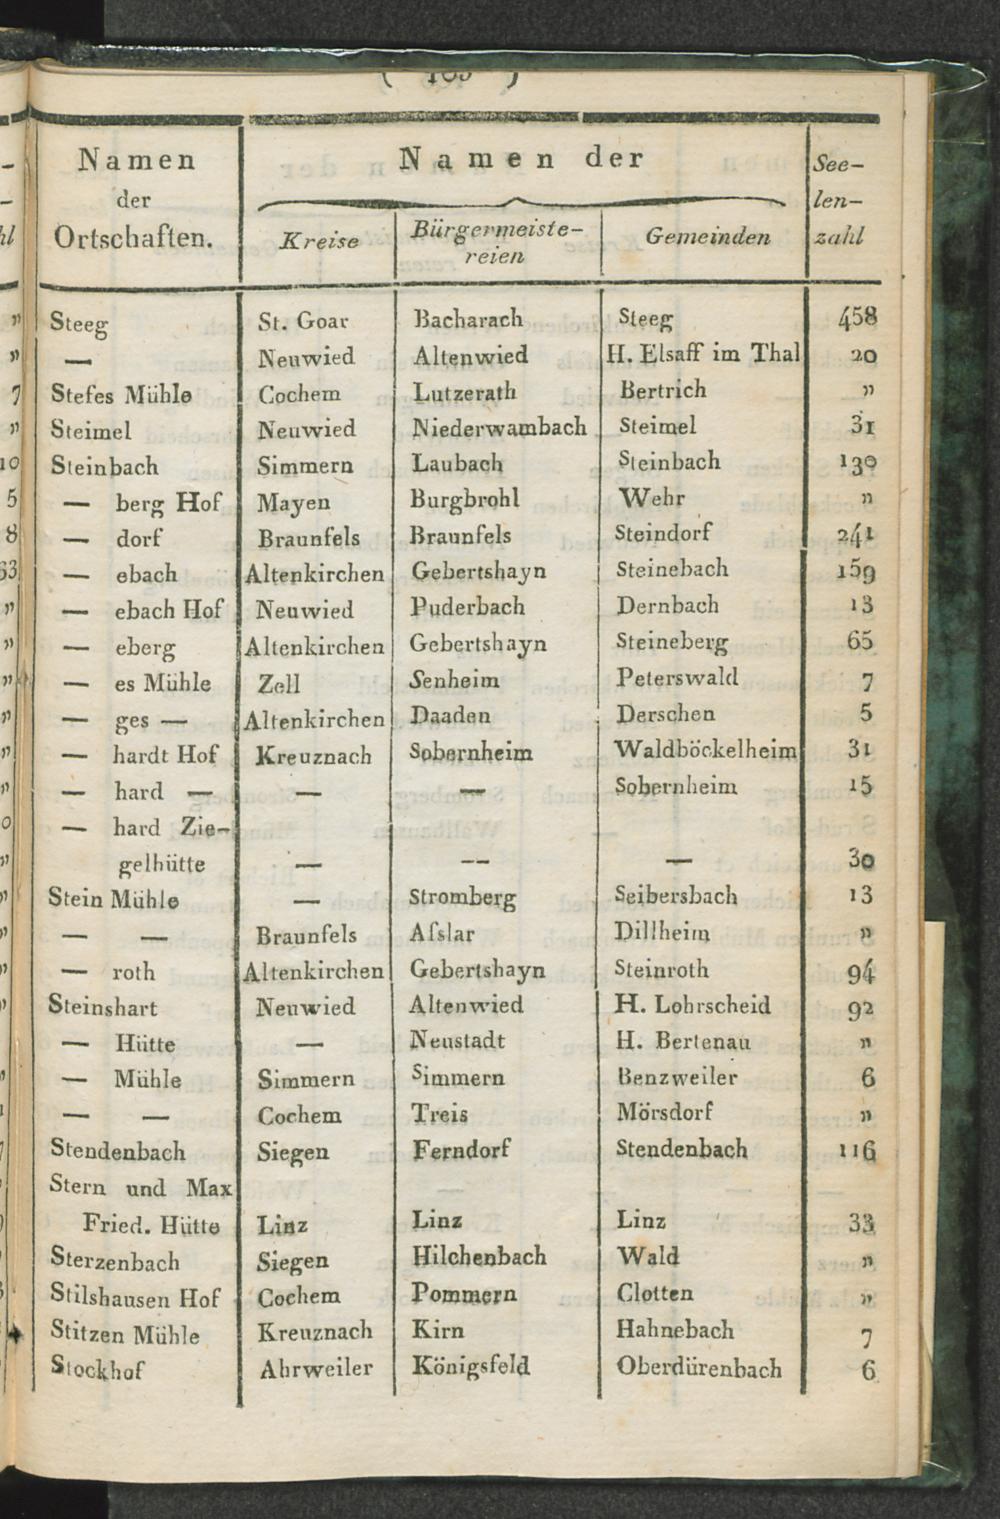 Namen
der
Ortschaften.
Namen der
Kreise
Bürgermeiste-
reien
Gemeinden
See-
len-
zahl
Steeg St. Goar Bacharach Steeg 458
— Neuwied Altenwied H. Elsaff im Thal 20
Stefes Mühle Cochem Lutzerath Bertrich "
Steimel Neuwied Niederwambach Steimel 31
Steinbach Simmern Laubach Steinbach 130
— berg Hof Mayen Burgbrohl Wehr "
— dorf Braunfels Braunfels Steindorf 241
— ebach Altenkirchen Gebertshayn Steinebach 159
— ebach Hof Neuwied Puderbach Dernbach 13
— eberg Altenkirchen Gebertshayn Steineberg 65
— es Mühle Zell Senheim Peterswald 7
— ges — Altenkirchen Daaden Derschen 5
— hardt Hof Kreuznach Sobernheim Waldböckelheim 31
— hard — — — Sobernheim 15
— hard Zie-
gelhütte — — — 30
Stein Mühle — Stromberg Seibersbach 13
— — Braunfels Aſslar Dillheim "
— roth Altenkirchen Gebertshayn Steinroth 94
Steinshart Neuwied Altenwied H. Lohrscheid 92
— Hütte — Neustadt H. Bertenau "
— Mühle Simmern Simmern Benzweiler 6
— — Cochem Treis Mörsdorf "
Stendenbach Siegen Ferndorf Stendenbach 116
Stern und Max
Fried. Hütte Linz Linz Linz 33
Sterzenbach Siegen Hilchenbach Wald "
Stilshausen Hof Cochem Pommern Clotten "
Stitzen Mühle Kreuznach Kirn Hahnebach 7
Stockhof Ahrweiler Königsfeld Oberdürenbach 6